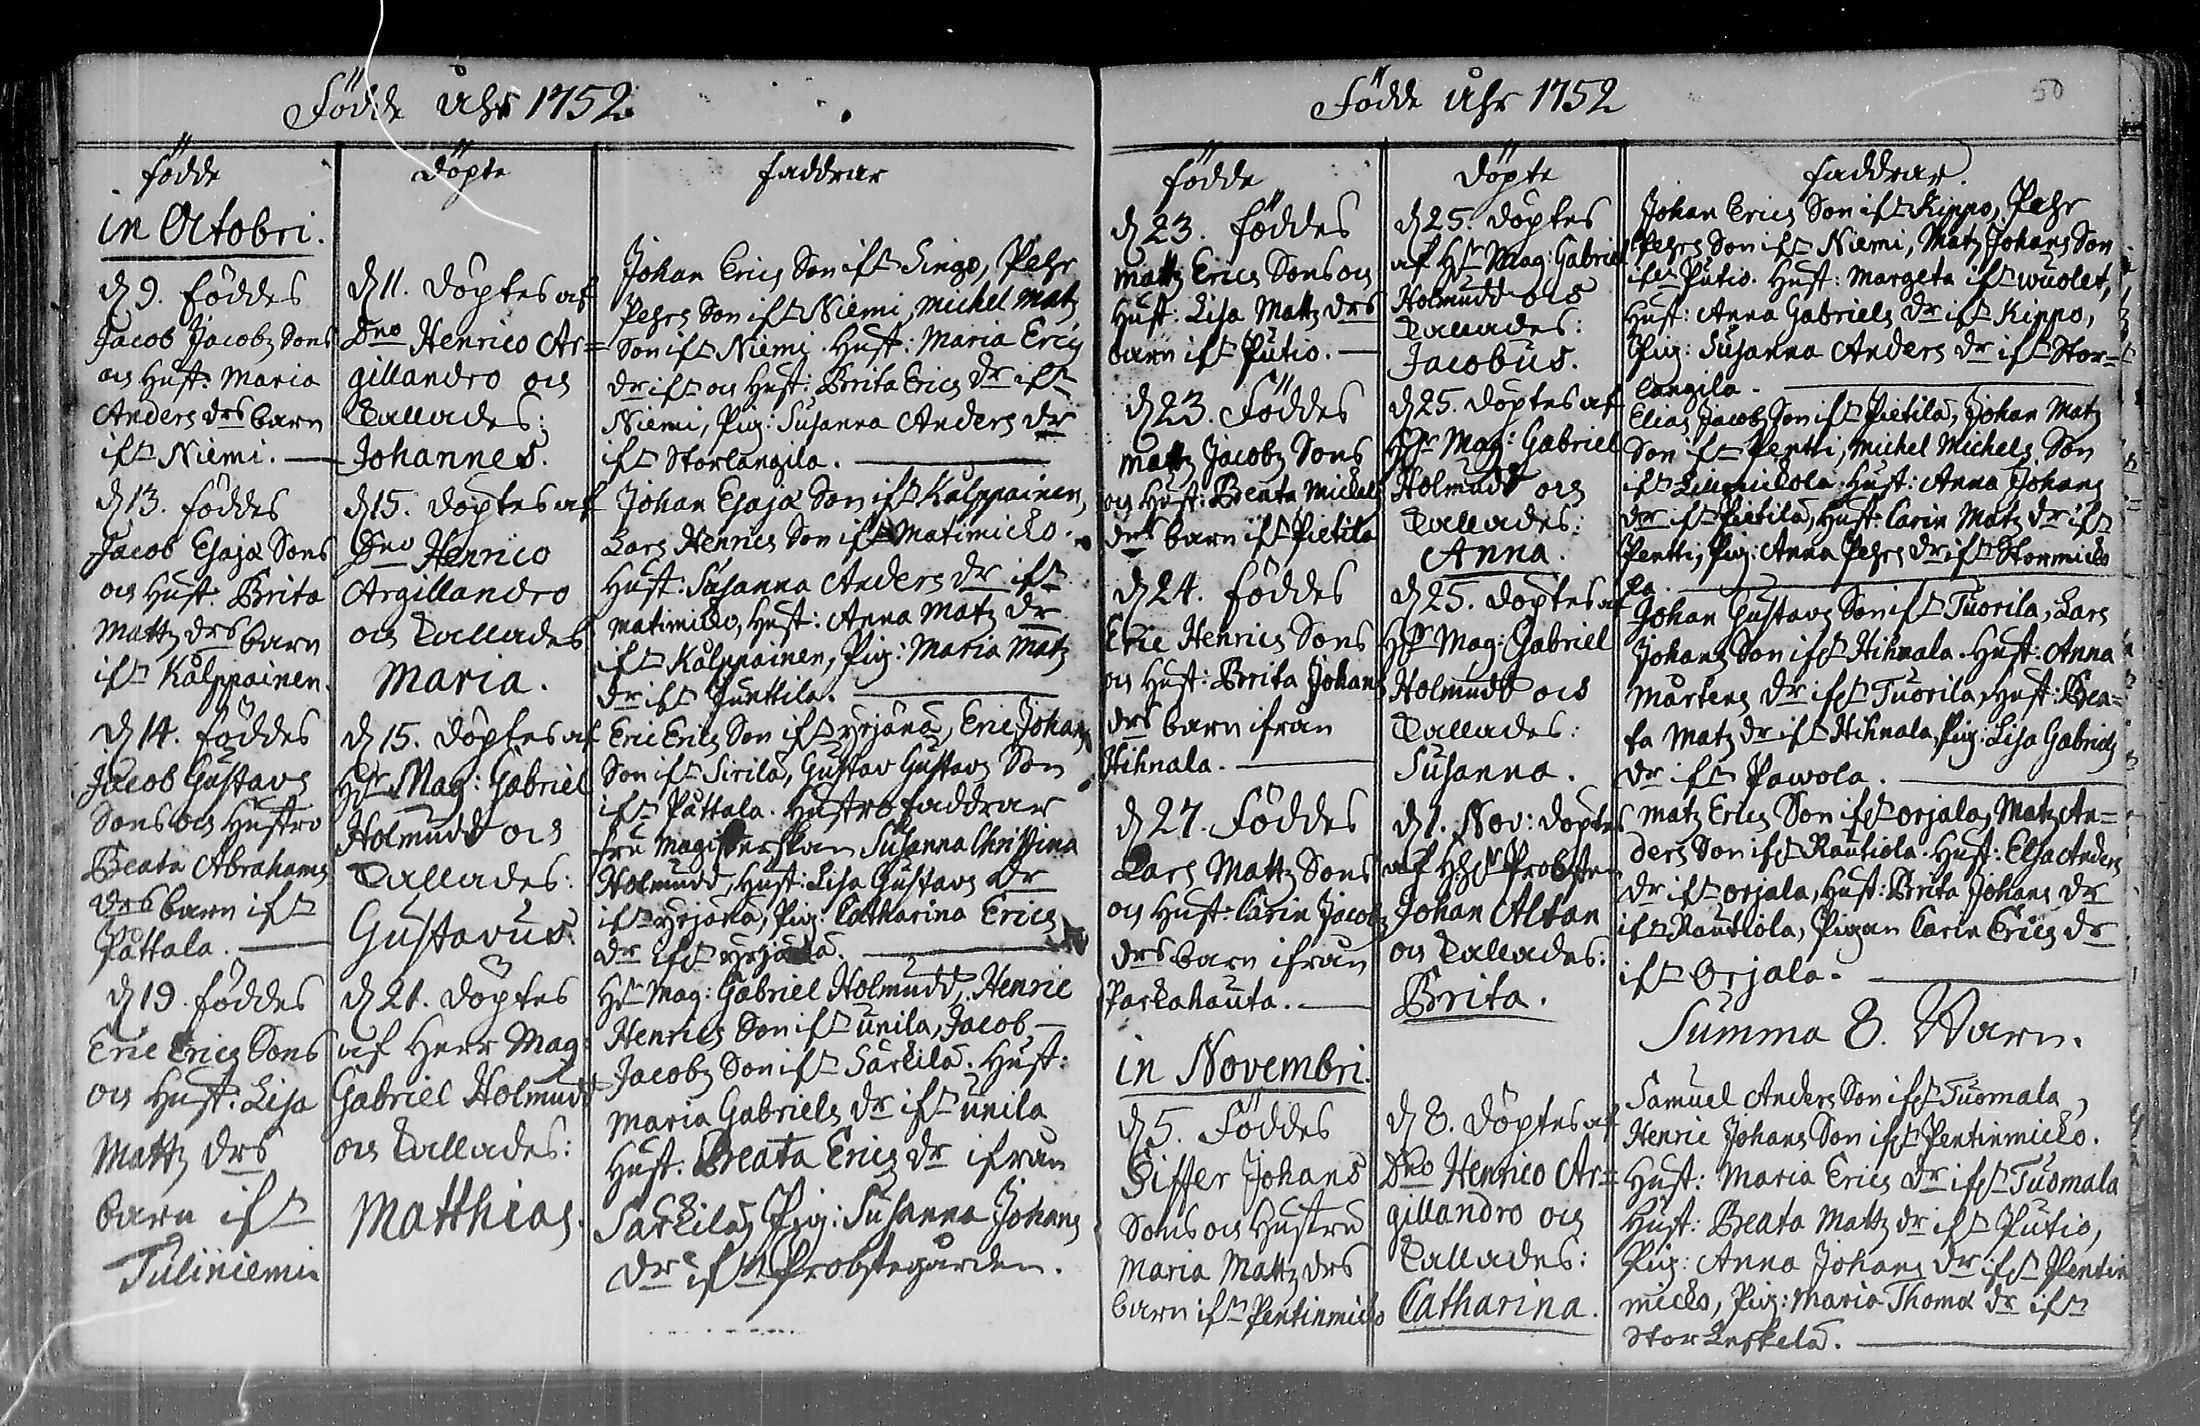 Födde Åhr 1752
födde
döpte
faddrar
in Octobri.
d 9. föddes
Jacob Jacobz Sons
och Hust: Maria
Anders drs barn
ifr Niemi.
d 11. döptes af
Dno Henrico Ar=
gillandro och
Kallades:
Johannes.
Johan Erics Son ifr Pehr
Pehrs Son ifr Niemi, Michel Matz
Son ifr Niemi. Hust: Maria Erics
dr ifr och Hust: Brita Erics dr ifr
Niemi, Pig: Susanna Anders dr
ifr Storlangila.
d 13. föddes
Jacob Esajæ Sons
och Hust: Brita
Mattz drs barn
ifr Kålppainen.
d 15. döptes af
Dno Henrico
Argillandro
och Kallades
Maria.
Johan Esajæ Son ifr Kålppainen,
Lars Henrics Son ifr Matimicko.
Hust: Susanna Anders dr ifr
Matimicko, Hust: Anna Matz dr
ifr Kålppainen, Pig: Maria Matz
dr ifr Junttila.
d 14. föddes
Jacob Gustavs
Sons och Hustro
Beata Abrahams
drs barn ifr
Påttala.
d 15. döptes af
Hr Mag: Gabriel
Holmudd och
Kallades:
Gustavus.
Eric Erics Son ifr Yrjänä, Eric Johans
Son ifr Sirilä, Gustav Gustavs Son
ifr Påttala. Hustro faddrar
fru Magisterskan Susanna Christina
Holmudd, Hust: Lisa Gustavs dr
ifr Yrjänä, Pig: Catharina Erics
dr ifr Yrjänä.
d 19. föddes
Eric Erics Sons
och Hust: Lisa
Mattz drs
barn ifr
Tuliniemi
d 21. döptes
af Herr Mag:
Gabriel Holmudd
och Kallades:
Matthias.
Hr Mag: Gabriel Holmudd, Henric
Henrics Son ifr Unila, Jacob
Jacobz Son ifr Särkilä. Hust:
Maria Gabriels dr ifr Unila
Hust: Beata Erics dr ifrån
Särkilä, Pig: Susanna Johans
dr ifr Probstegården.
Födde Åhr 1752
50
födde
döpte
faddrar.
d 23. föddes
Mattz Erics Sons och
Hust: Lisa Mattz drs
barn ifr Putio.
d 25. döptes
af Hr Mag: Gabriel
Holmudd och
Kallades:
Jacobus.
Johan Erics Son ifr Kippo, Pehr
Pehrs Son ifr Niemi, Matz Johans Son
ifr Putio. Hust: Margeta ifr Wuolet,
Hust: Anna Gabriels dr ifr Kippo,
Pig: Susanna Anders dr ifr Stor=
langila.
d 23. föddes
Mattz Jacobz Sons
och Hust: Beata Michels
drs barn ifr Pietilä
d 25. döptes af
Hr Mag: Gabriel
Holmudd och
Kallades:
Anna.
Elias Jacobz Son ifr Pietilä, Johan Matz
Son ifr Pentti, Michel Michels Son
ifr Hust: Anna Johans
dr ifr Pietilä, Hust: Carin Matz dr ifr
Pentti, Pig: Anna Pehrs dr ifr Stormicko
la.
d 24. föddes
Eric Henrics Sons
och Hust: Brita Johans
drs barn ifrån
Hihnala.
d 25. döptes af
Hr Mag: Gabriel
Holmudd och
Kallades:
Susanna.
Johan Gustavs Son ifr Tuorila, Lars
Johans Son ifr Hihnala. Hust: Anna
Mårtens dr ifr Tuorila, Hust: Bea=
ta Matz dr ifr Hihnala, Pig: Lisa Gabriels
dr ifr Pawola.
d 27. föddes
Lars Mattz Sons
och Hust: Carin Jacobz
drs barn ifrån
Parkahauta.
d 1. Nov: döptes
af H: Hr Probsten
Johan Altan
och Kallades:
Brita.
Matz Erics Son ifr Orjala, Matz An=
ders Son ifr Rautiola. Hust: Elsa Anders
dr ifr Orjala, Hust: Brita Johans dr
ifr Rautiola, Pigan Carin Erics dr
ifr Orjala.
Summa 8. Barn.
in Novembri.
d 5. föddes
Johans
Sons och Hustru
Maria Mattz drs
barn ifr Pentinmicko
d 8. döptes af
Dno Henrico Ar=
gillandro och
Kallades:
Catharina.
Samuel Anders Son ifr Tuomala,
Henric Johans Son ifr Pentinmicko.
Hust: Maria Erics dr ifr Tuomala
Hust: Beata Mattz dr ifr Putio,
Pig: Anna Johans dr ifr Pentin
micko, Pig: Maria Thomæ dr ifr
Stor Leskelä.